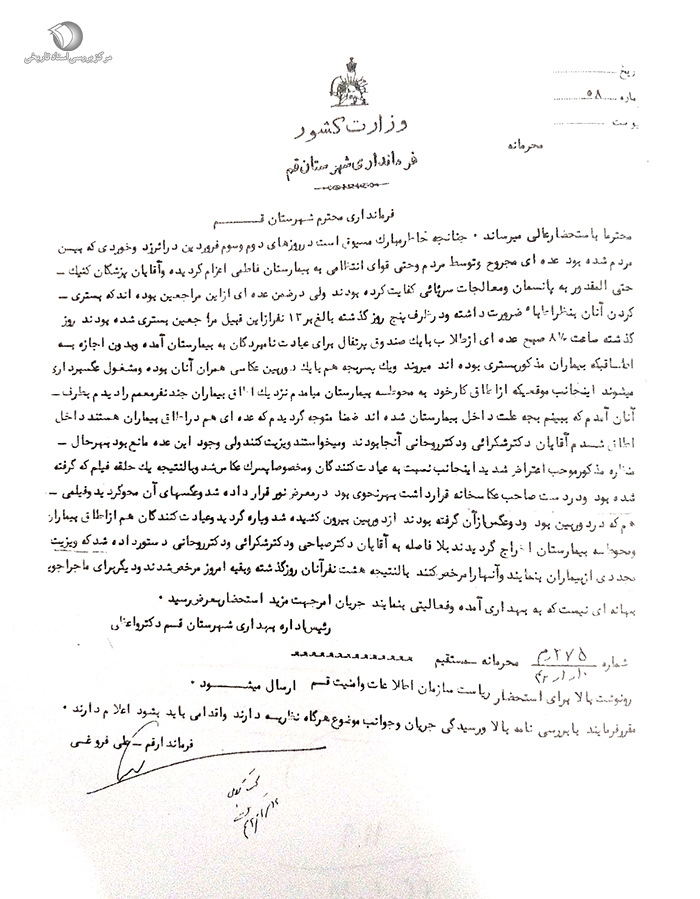 مرکز بررسی اسناد تاریخی
ریخ
ماره ۵۸
یوست
محرمانه
وزارت کشور
فرمانداری شهرستان قم
فرمانداری محترم شهرستان قم
محترما باستحضارعالی میرساند ۰ چنانچه خاطرمبارك مسبوق است درروزهای دوم وسوم فروردین دراثرزد وخوردی که بین
مردم شده بود عده ای مجروح وتوسط مردم وحتی قوای انتظامی به بیمارستان فاطمی اعزام گردیده وآقایان پزشکان کشیك
حتی المقدور به پانسمان ومعالجات سرپائی کفایت کرده بودند ولی درضمن عده ای ازاین مراجعین بوده اندکه بستری -
کردن آنان بنظراطباء ضرورت داشته ودرظرف پنج روز گذشته بالغ بر ۱۳ نفرازاین قبیل مراجعین بستری شده بودند روز
گذشته ساعت ۸/۵ صبح عده ای ازطلاب بایك صندوق پرتقال برای عیادت نامبردگان به بیمارستان آمده وبدون اجازه به
اطاقیکه بیماران مذکوربستری بوده اند میروند ویك پسربچه هم بایك دوربین عکاسی همران آنان بوده ومشغول عکسبرداری
میشوند اینجانب موقعیکه ازاطاق کارخود به محوطه بیمارستان میامدم نزدیك اطاق بیماران چندنفرمعمم رادیدم بطرف -
آنان آمدم که ببینم بچه علت داخل بیمارستان شده اند ضمنا متوجه گردیدم که عده ای هم دراطاق بیماران هستند داخل
اطاق شدم آقایان دکترشکرائی ودکترروحانی آنجابودند ومیخواستند ویزیت کنندولی وجود این عده مانع بود بهرحال -
نظاره مذکورموجب اعتراض شدید اینجانب نسبت به عیادت کنندگان ومخصوصاپسرك عکاس شد بالنتیجه یك حلقه فیلم که گرفته
شده بود ودردست صاحب عکاسخانه قرارداشت بهرنحوی بود درمعرض نور قرارداده شد وعکسهای آن محوگردید وفیلمی -
هم که دردوربین بود ودوعکس ازآن گرفته بودند ازدوربین بیرون کشیده شد وپاره گردید وعیادت کنندگان هم ازاطاق بیماران
ومحوطه بیمارستان اخراج گردیدند بلا فاصله به آقایان دکترصباحی ودکترشکرائی ودکترروحانی دستورداده شدکه ویزیت
مجددی ازبیماران بنمایند وآنهارامرخص کنند بالنتیجه هشت نفرآنان روزگذشته وبقیه امروز مرخص شدند ودیگربرای ماجراجو
بهانه ای نیست که به بهداری آمده وفعالیتی بنمایند جریان امرجهت مزید استحضاربعرض رسید ۰
رئیس اداره بهداری شهرستان قم دکترواعظی
شماره ۲۷۵م محرمانه - مستقیم
۴۲/۱/۱۰
رونوشت بالا برای استحضار ریاست سازمان اطلاعات وامنیت قم ارسال میشود ۰
مقررفرمایند بابررسی نامه بالا ورسیدگی جریان وجوانب موضوع هرگاه نظریه دارند واقدامی باید بشود اعلام دارند ۰
فرماندارقم - علی فروغی